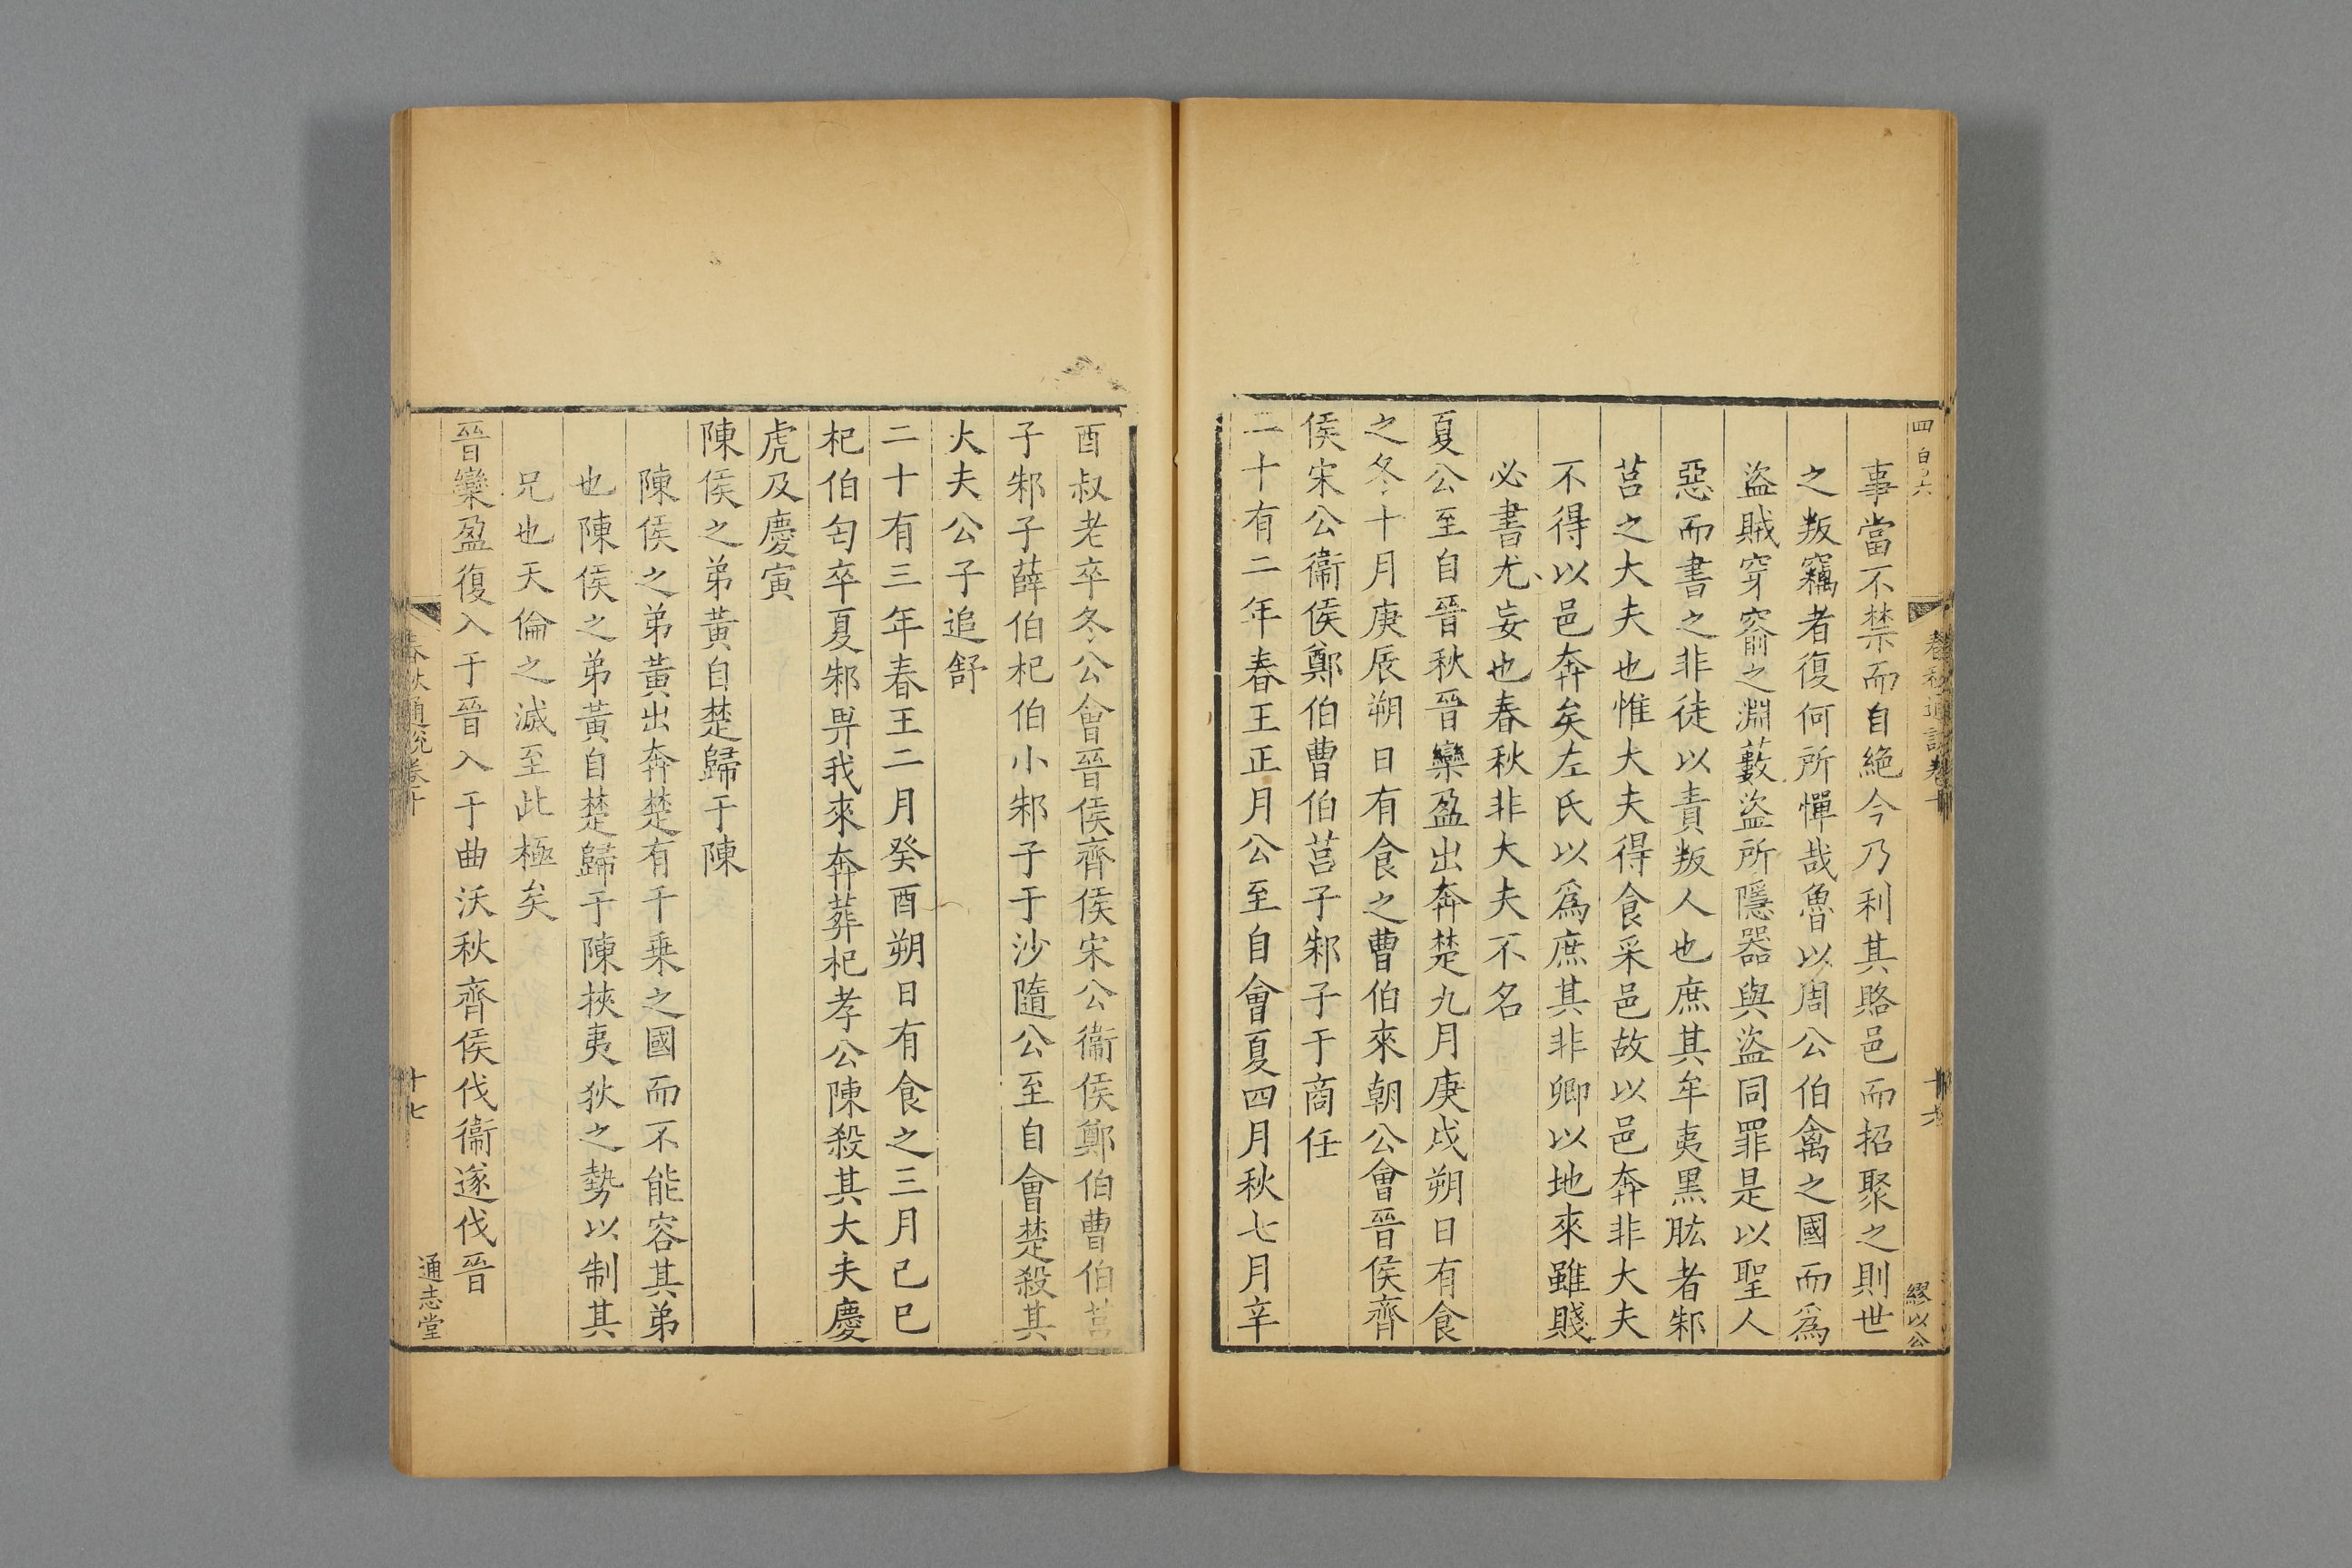 四百六
春秋通說卷十
十六
繆以公
事當不禁而自絕今乃利其賂邑而招聚之則世
之叛竊者復何所憚哉魯以周公伯禽之國而爲
盜賊穿窬之淵藪盜所隱器與盜同罪是以聖人
惡而書之非徒以責叛人也庶其牟夷黑肱者邾
莒之大夫也惟大夫得食采邑故以邑奔非大夫
不得以邑奔矣左氏以爲庶其非卿以地來雖賤
必書尤妄也春秋非大夫不名
夏公至自晉秋晉欒盈出奔楚九月庚戌朔日有食
之冬十月庚辰朔日有食之曹伯來朝公會晉侯齊
侯宋公衞侯鄭伯曹伯莒子邾子于商任
二十有二年春王正月公至自會夏四月秋七月辛
酉叔老卒冬公會晉侯齊侯宋公衞侯鄭伯曹伯莒
子邾子薛伯杞伯小邾子于沙隨公至自會楚殺其
大夫公子追舒
二十有三年春王二月癸酉朔日有食之三月己巳
杞伯匄卒夏邾畀我來奔葬杞孝公陳殺其大夫慶
虎及慶寅
陳侯之弟黃自楚歸于陳
陳侯之弟黃出奔楚有千乗之國而不能容其弟
也陳侯之弟黃自楚歸于陳挾夷狄之勢以制其
兄也天倫之滅至此極矣
晉欒盈復入于晉入于曲沃秋齊侯伐衞遂伐晉
春秋通說卷十
十七
通志堂